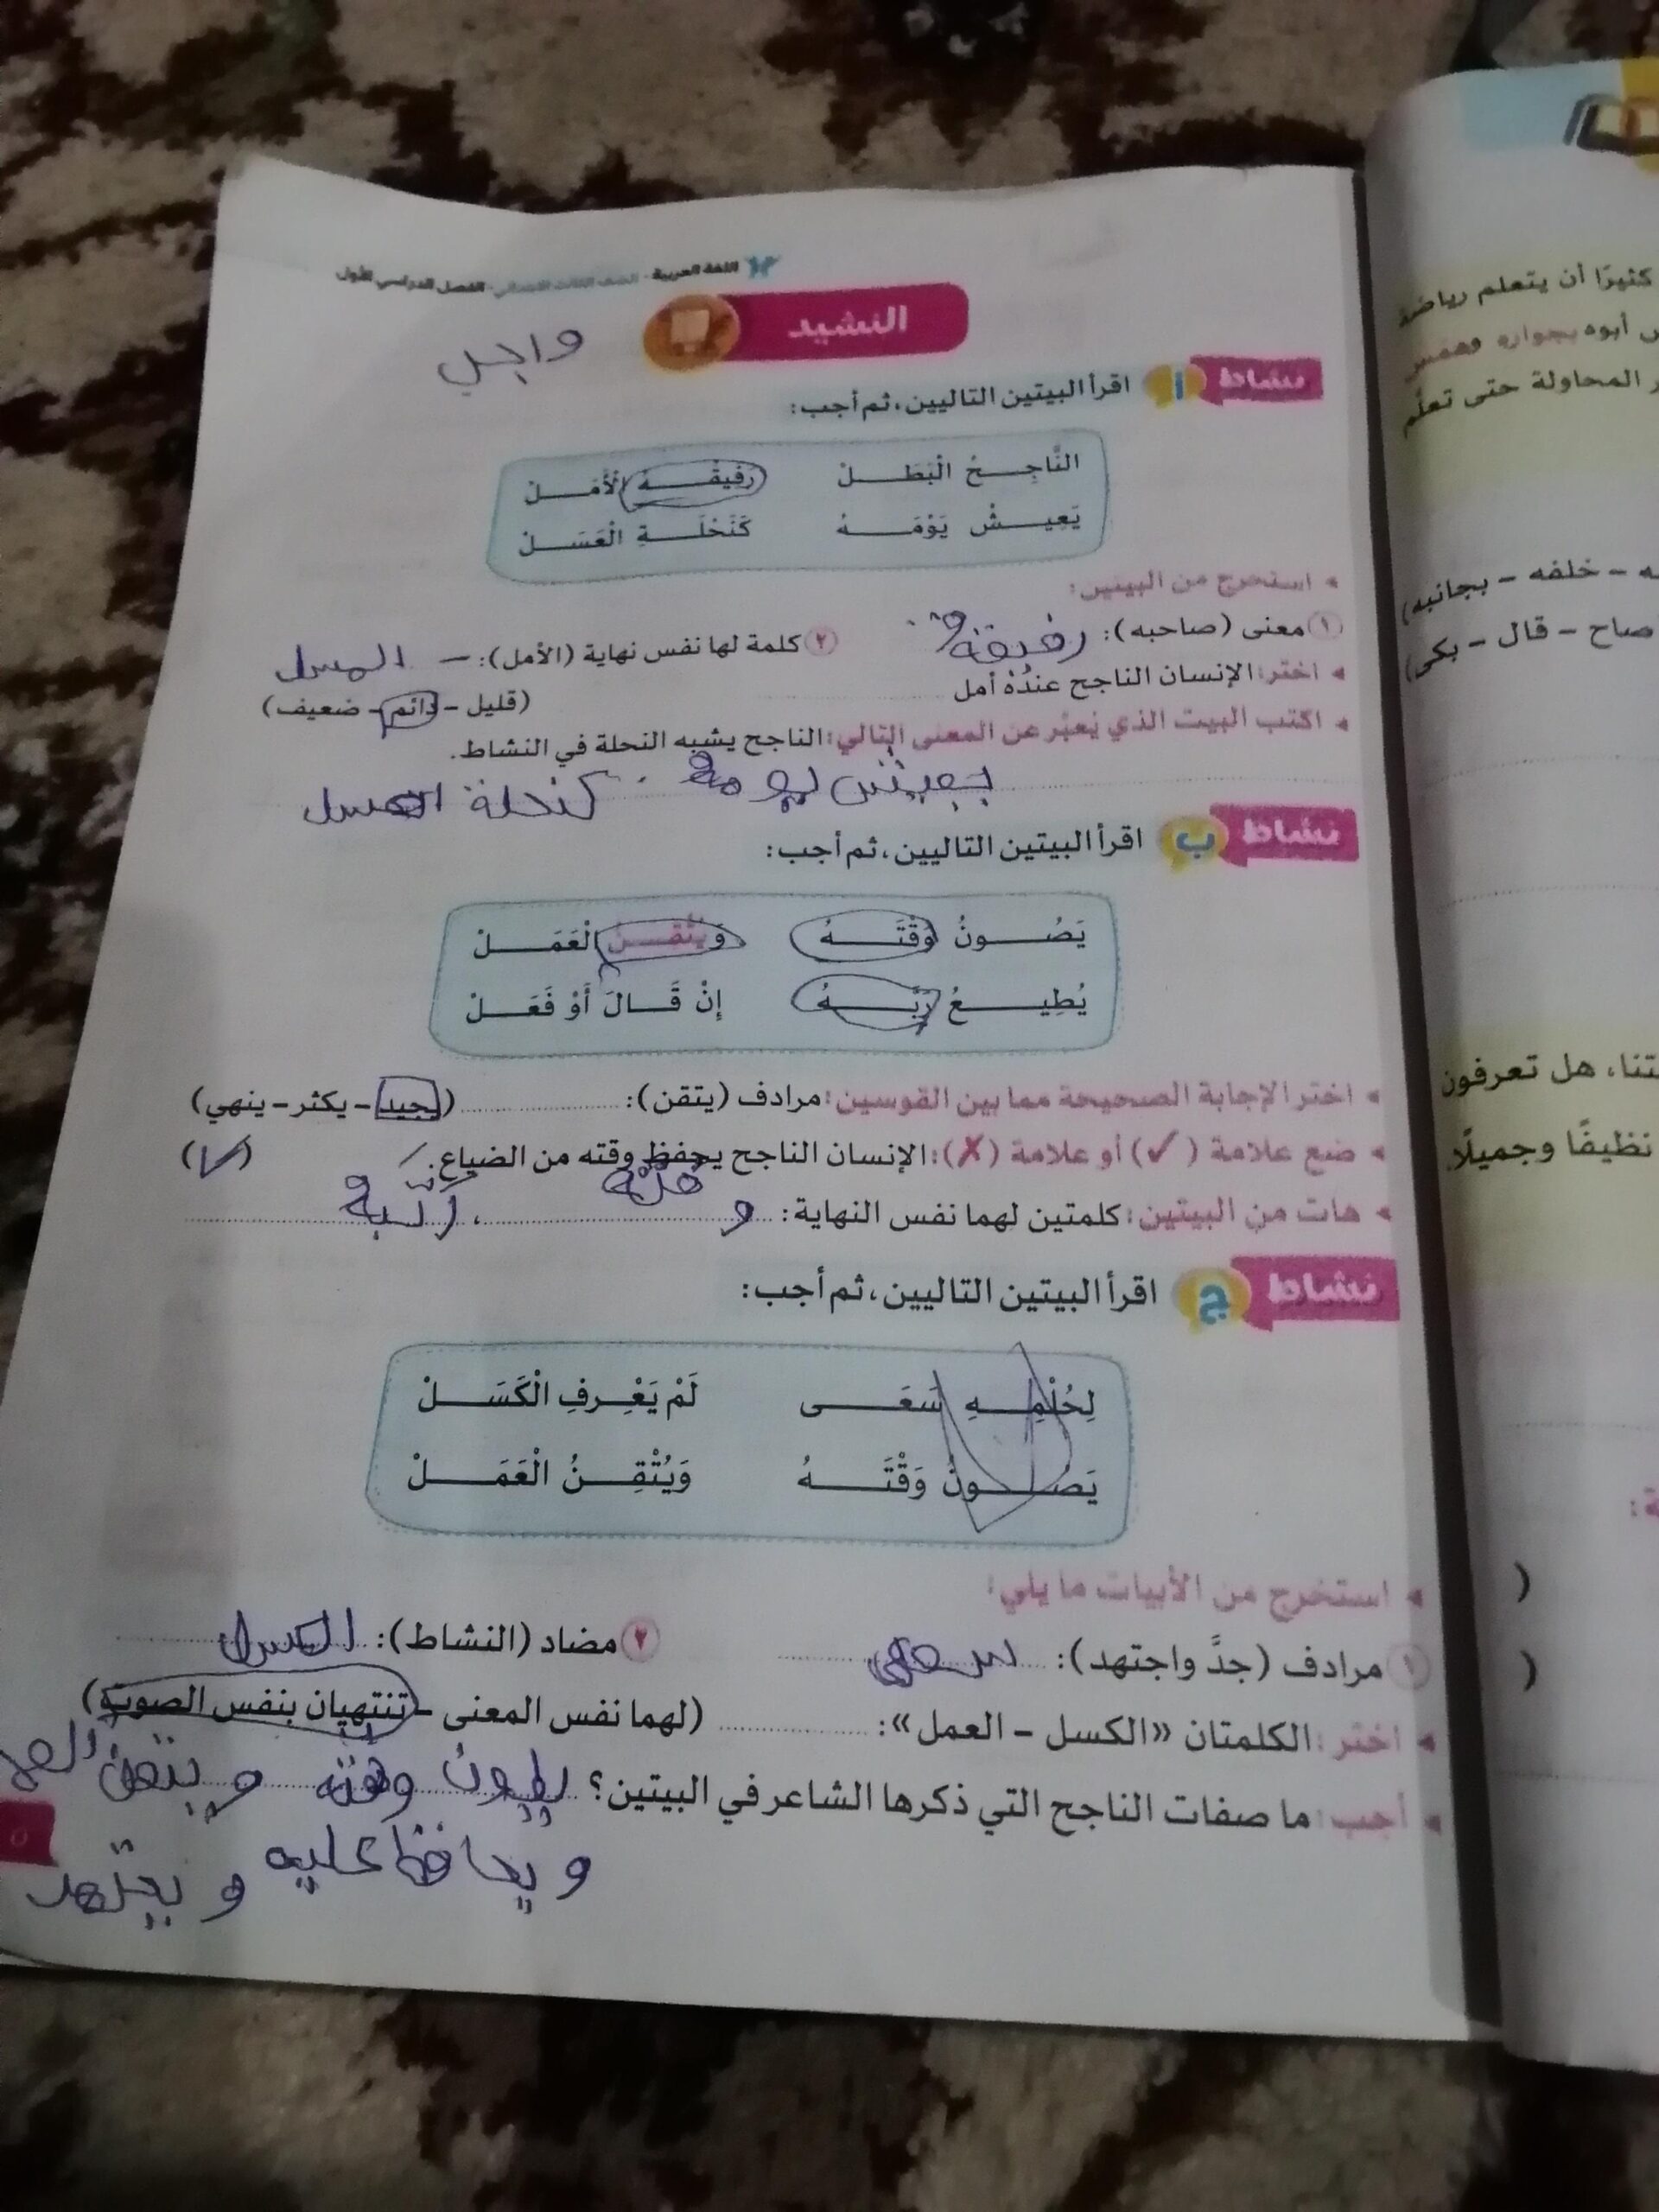 اللغة العربية - الصف الثالث الابتدائي - الفصل الدراسي الأول
النشيد
واجب
نشاط أ اقرأ البيتين التاليين، ثم أجب:
النَّاجِـــحُ الْبَطَـــلْ رَفِيقُـــهُ الْأَمَـــلْ
يَعِيـــشُ يَوْمَـــهُ كَنَحْلَـــةِ الْعَسَـــلْ
استخرج من البيتين:
١ معنى (صاحبه): رفيقه ٢ كلمة لها نفس نهاية (الأمل): العسل
اختر: الإنسان الناجح عنده أمل (قليل - دائم - ضعيف)
اكتب البيت الذي يُعبّر عن المعنى التالي: الناجح يشبه النحلة في النشاط.
يعيش يومه كنحلة العسل
نشاط ب اقرأ البيتين التاليين، ثم أجب:
يَصُـــونُ وَقْتَـــهُ وَيُتْقِـــنُ الْعَمَـــلْ
يُطِيـــعُ رَبَّـــهُ إِنْ قَـــالَ أَوْ فَعَـــلْ
اختر الإجابة الصحيحة مما بين القوسين: مرادف (يتقن): (يجيد - يكثر - ينهي)
ضع علامة (✓) أو علامة (✗): الإنسان الناجح يحفظ وقته من الضياع. (✓)
هات من البيتين: كلمتين لهما نفس النهاية: ،
نشاط ج اقرأ البيتين التاليين، ثم أجب:
لِحُلْمِـــهِ سَعَـــى لَمْ يَعْـــرِفِ الْكَسَـــلْ
يَصُـــونُ وَقْتَـــهُ وَيُتْقِـــنُ الْعَمَـــلْ
استخرج من الأبيات ما يلي:
١ مرادف (جدَّ واجتهد): سعى ٢ مضاد (النشاط): الكسل
اختر: الكلمتان «الكسل - العمل»: (لهما نفس المعنى - تنتهيان بنفس الصوت)
أجب: ما صفات الناجح التي ذكرها الشاعر في البيتين؟ وقته و يتقن
و يحافظ عليه و يجتهد
٥
كثيرًا أن يتعلم رياضة
أبوه بجواره وهمس
المحاولة حتى تعلَّم
- خلفه - بجانبه)
صاح - قال - بكى)
هل تعرفون
نظيفًا وجميلًا